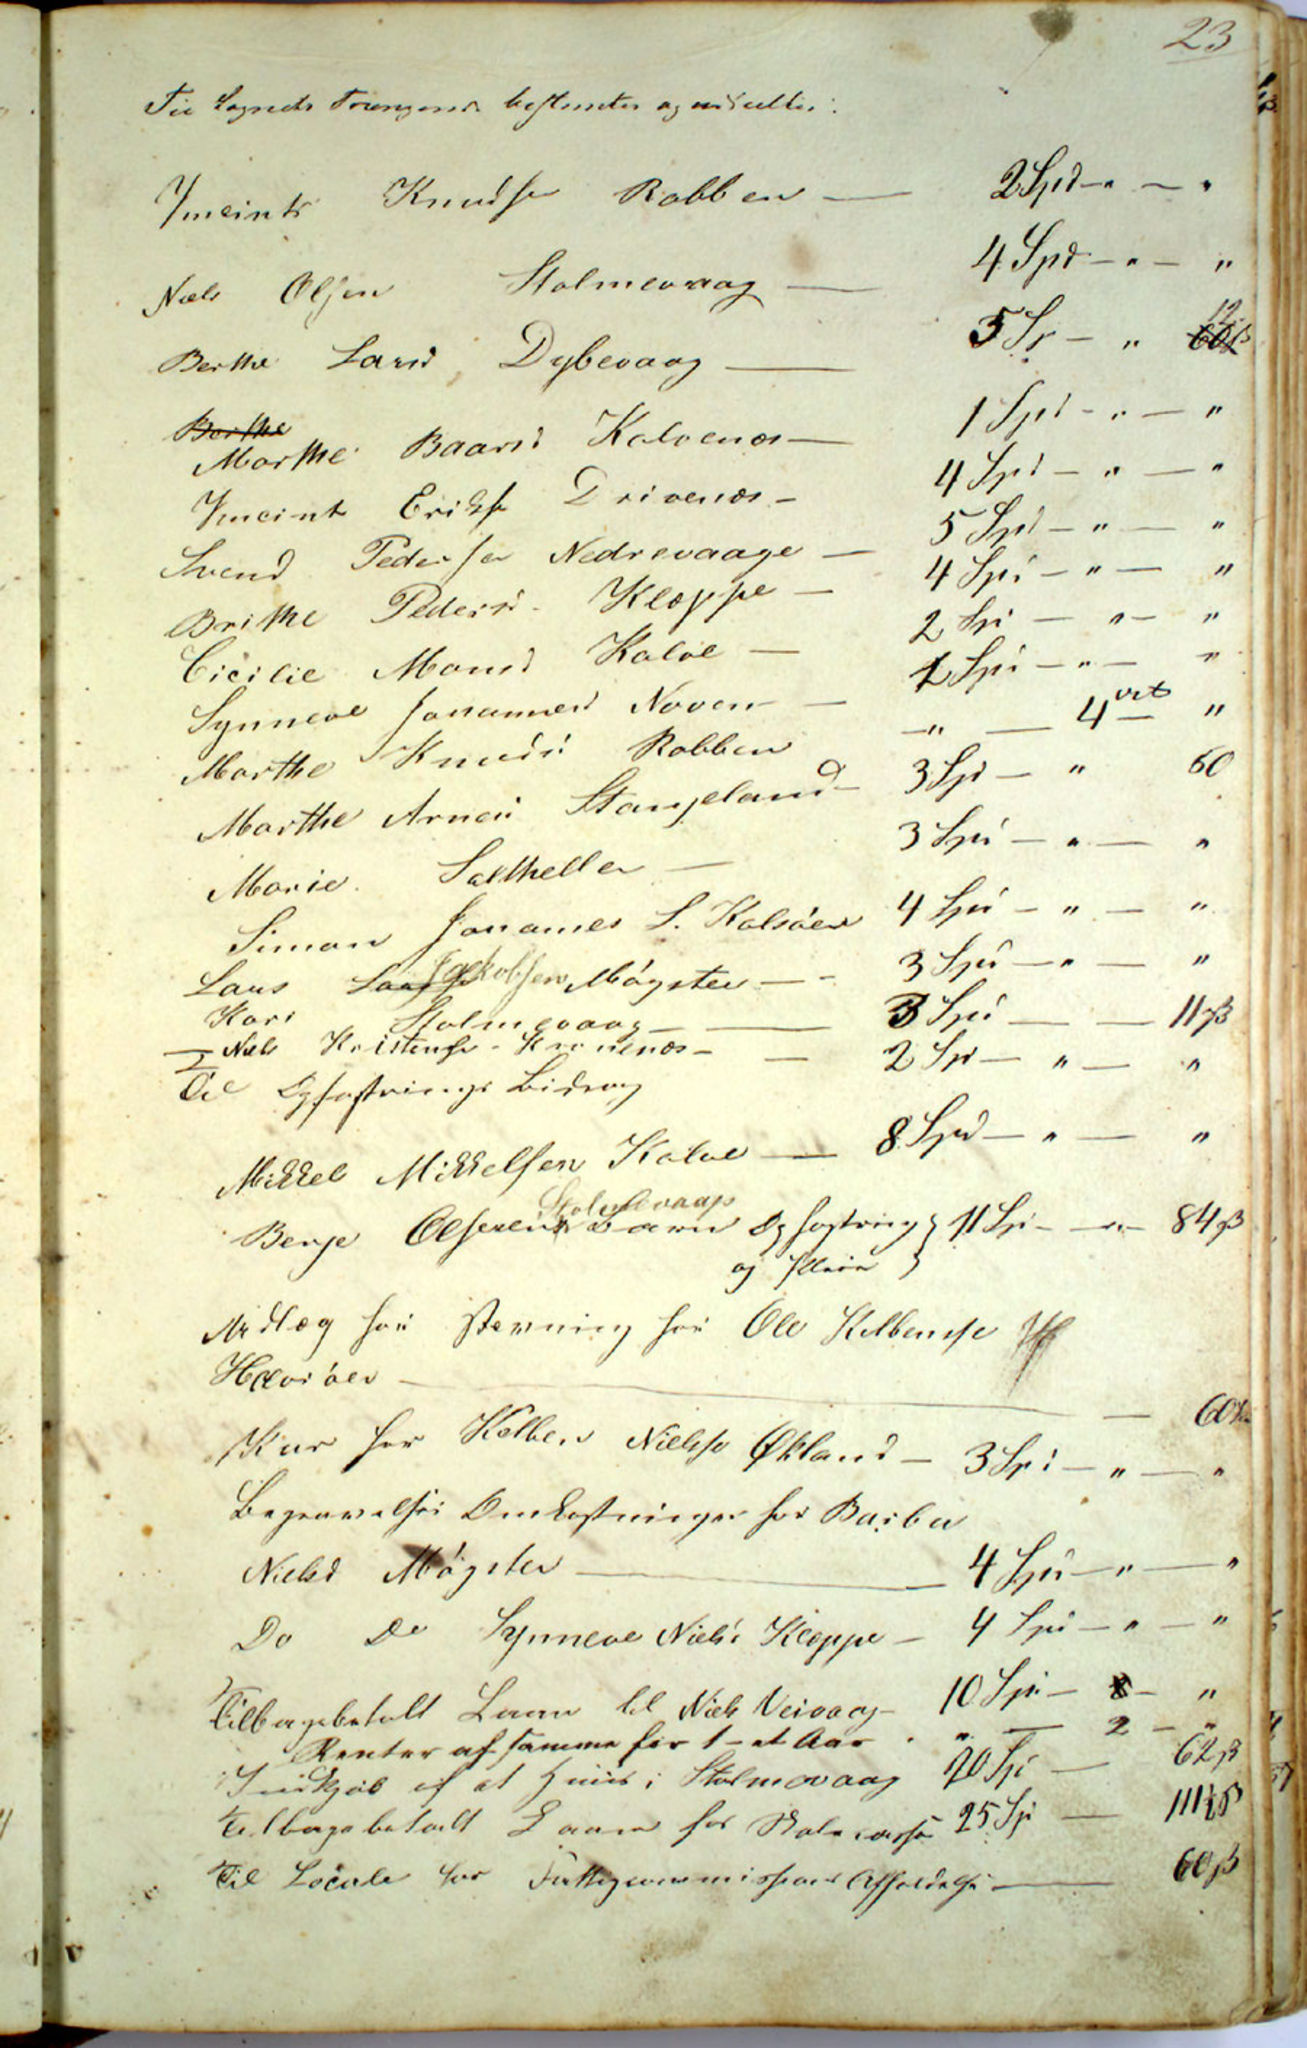 23
Til Sognets Trængende bestemtes og uddeltes:
Vincints Knudsen Robben — 2 Spd - " - "
Niels Olsen Stolmevaag — 4 Spd - " - "
Berthe Larsd Dybevaag — 5 Sp - " 60ß 12
Berthe
Marthe Baarsd Kalvenæs — 1 Spd - " - "
Vincint Eriksen Drivenæs - 4 Spd - " - "
Svend Pedersen Nedrevaage — 5 Spd - " - "
Brithe Pedersd. Kleppe - 4 Spd - " - "
Cicilie Monsd Kalve - 2 Spd - " - "
Synneve Johannesd Noven - 1 Spd - " - "
Marthe Knudsd Robben - " - 4 ort "
Marthe Arnesd Stangeland - 3 Spd - " 60
Marie Salthella - 3 Spd - " - "
Simon Johannes S. Kalsöen 4 Spd - " - "
Lars Larsen Jackobsen Møgster - 3 Spd - " - "
Kari Stolmevaag - 3 Spd - - 11ß
Niels Kristensen - 2 Spd - " - "
Til Opfostrings Bidrag
Mikkel Mikkelsen Kalve — 8 Spd - " - "
Stolmevaag
Berge Olsens Barn Opfostring } 11 Spd - " - 84ß
og Klæder }
Udlæg for Stevning for Ole Kelbensen
Havsöen — 60ß
Kur for Kelben Nielsen Økland - 3 Spd - " - "
Begravelses Omkostninger for Barbra
Nielsd Møgster — 4 Spd - " - "
Do Do Synneve Nielsd Kleppe - 4 Spd - " - "
Tilbagebetalt Laan til Niels Veivaag - 10 Spd - "
Renter af samme for 1 - et Aar . " - 2 - "
Indkjøb af et Huus i Stolmevaag 20 Spd - 62ß
Tilbagebetalt Laan for 25 Sp - 111½ß
Til Locale for Fattigcommissions Afholdelse — 60ß